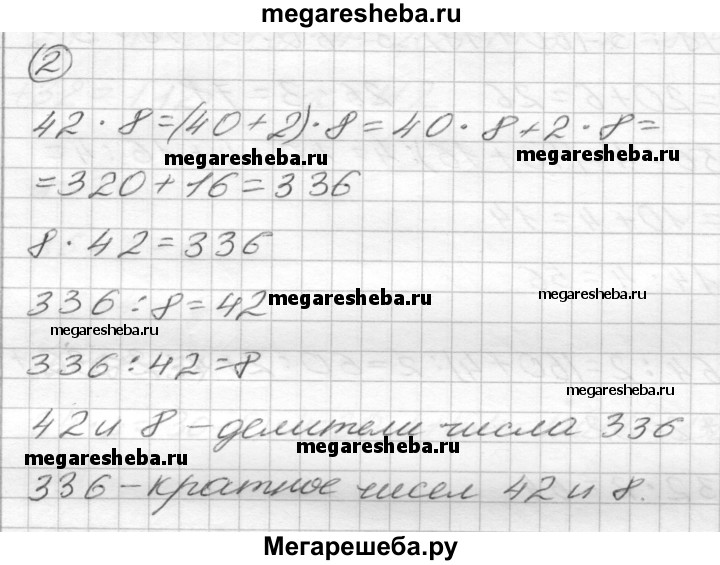 megaresheba.ru
2
42 · 8 = (40 + 2) · 8 = 40 · 8 + 2 · 8 =
megaresheba.ru
megaresheba.ru
= 320 + 16 = 336
8 · 42 = 336
336 : 8 = 42
megaresheba.ru
megaresheba.ru
megaresheba.ru
336 : 42 = 8
megaresheba.ru
42 и 8 – делители числа 336
megaresheba.ru
megaresheba.ru
336 – кратное чисел 42 и 8.
Мегарешеба.ру